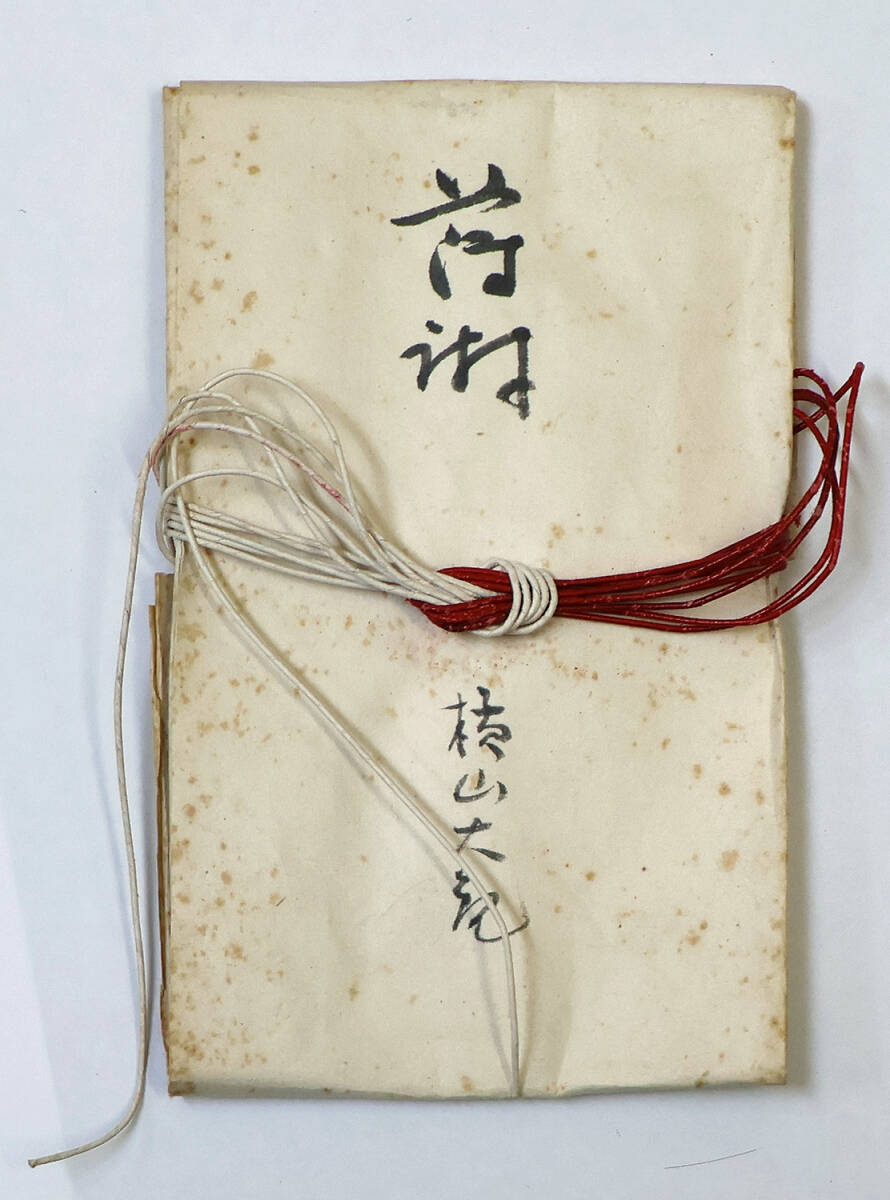 薄謝
横山大観